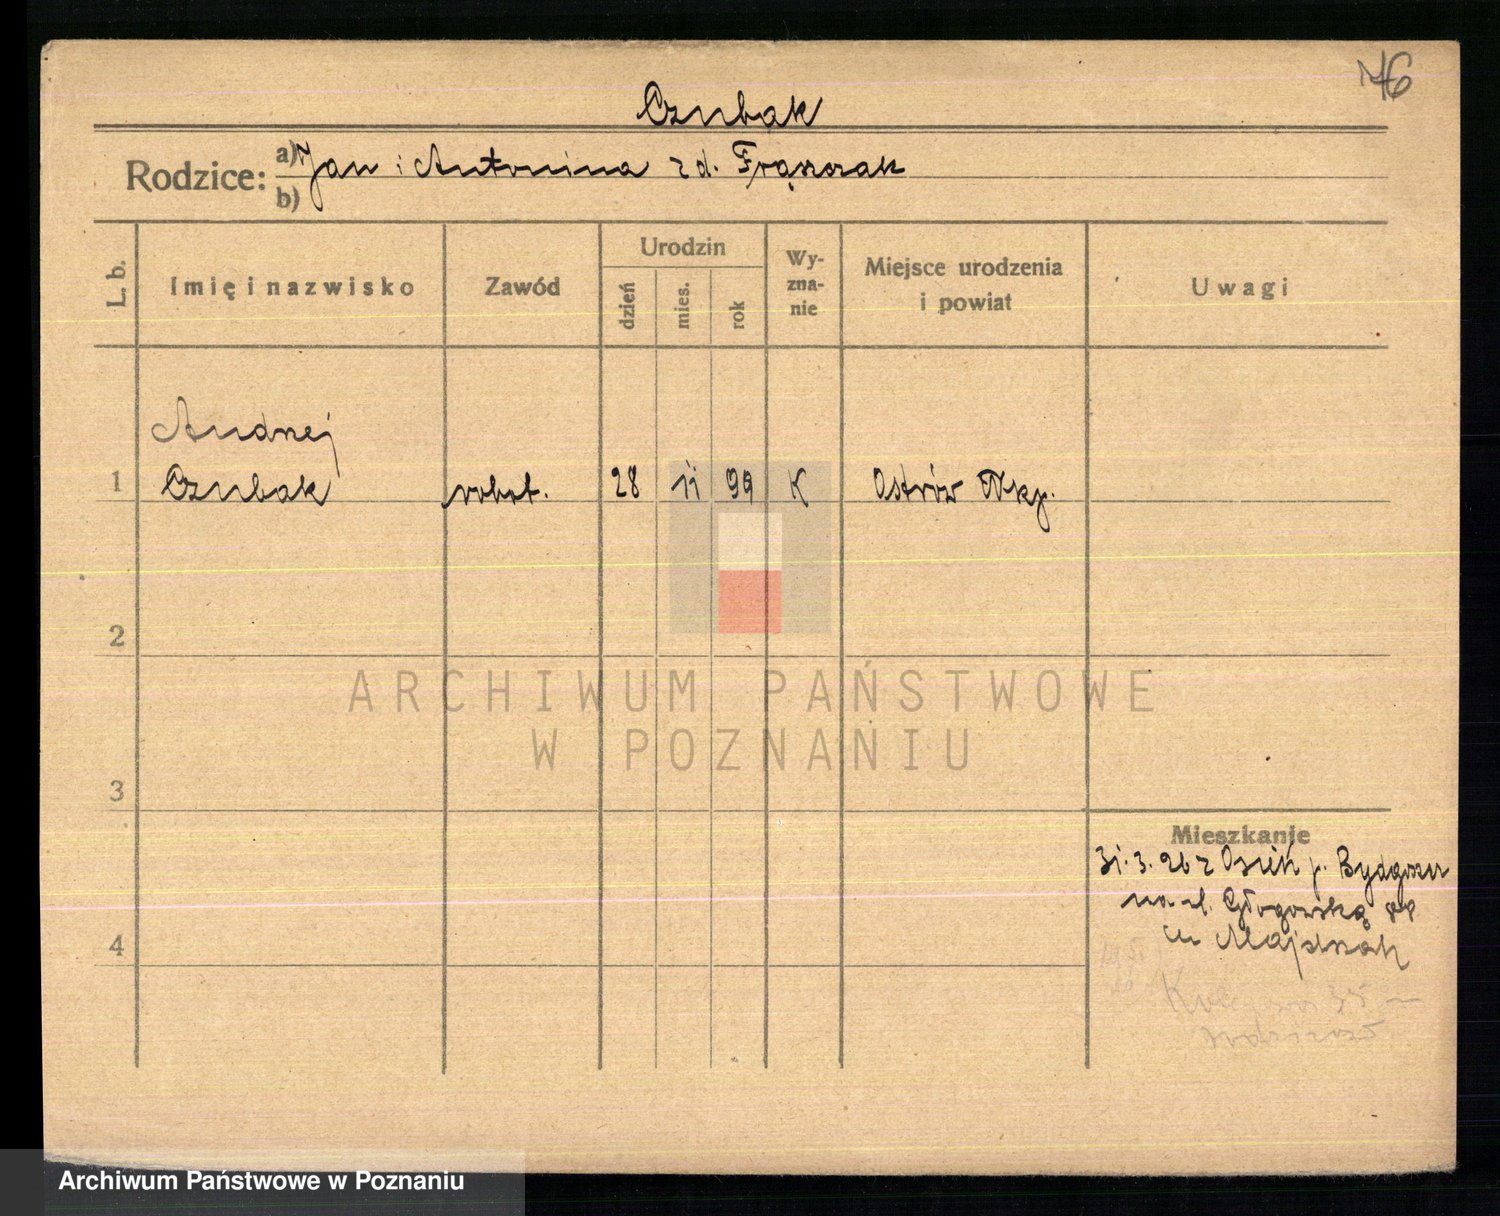 76
Czubak
Rodzice: a) Jan i Antonina z d. Frąszczak
b)
L. b.
Imię i nazwisko
Zawód
Urodzin
dzień
mies.
rok
Wy-
zna-
nie
Miejsce urodzenia
i powiat
Uwagi
Andrzej
1 Czubak robot. 28 11 99 K Ostrów Wkp.
2
3
4
Mieszkanie
31.3.26 z Osiek p. Bydgoszcz
na ul. Głogowską 88
u Majdszak
ARCHIWUM PAŃSTWOWE
W POZNANIU
Archiwum Państwowe w Poznaniu